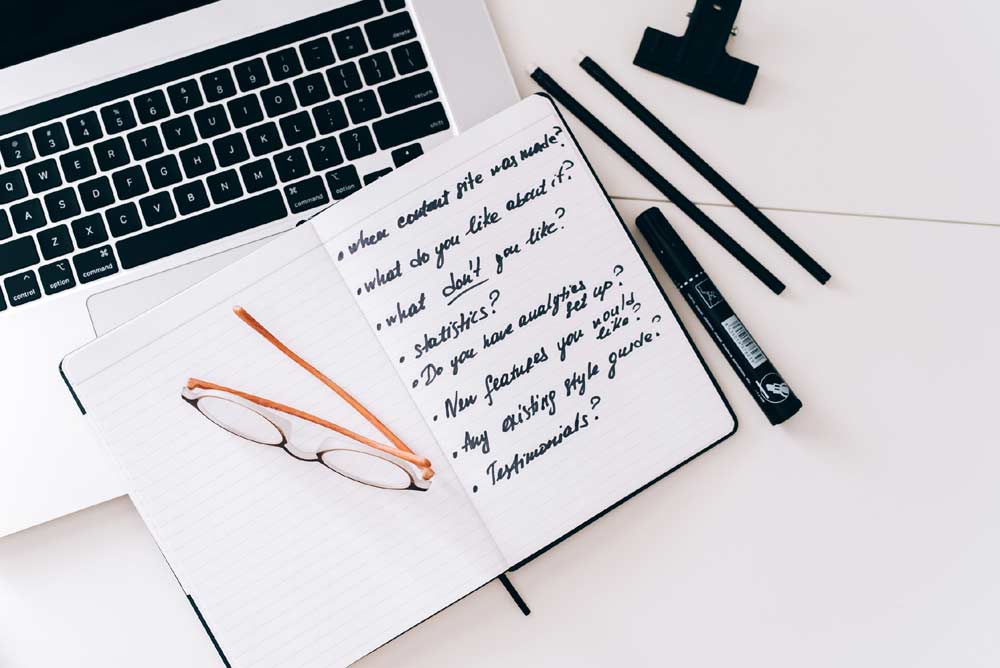 • when content site was made?
• what do you like about it?
• what don't you like?
• statistics?
• Do you have analytics
set up?
• New features you would
like?
• Any existing style guide?
• Testimonials?
@ # $ % ^ & * ( )
2 3 4 5 6 7 8 9 0 delete
Q W E R T Y U I O P
return
A S D F G H J K L
Z X C V B N M < > ?
, . / shift
control option command command option